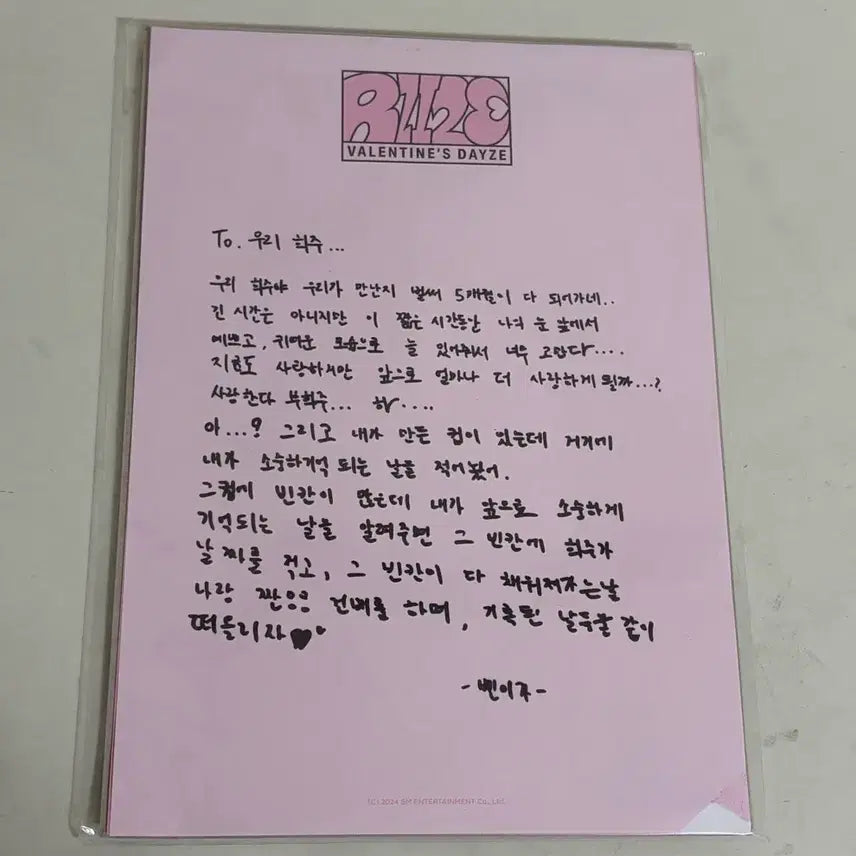 RIIZE
VALENTINE'S DAYZE
To. 우리 희주...
우리 희주야 우리가 만난지 벌써 5개월이 다 되어가네..
긴 시간은 아니지만 이 짧은 시간동안 나의 눈 앞에서
예쁘고, 귀여운 모습으로 늘 있어줘서 너무 고맙다....
지금도 사랑하지만 앞으로 얼마나 더 사랑하게 될까...?
사랑한다 부희주... 하....
아...? 그리고 내가 만든 컵이 있는데 거기에
내가 소중하게 기억되는 날을 적어봤어.
그컵에 빈칸이 많은데 내가 앞으로 소중하게
기억되는 날을 알려주면 그 빈칸에 희주가
날짜를 적고, 그 빈칸이 다 채워져가는날
나랑 짠 건배를 하며, 기록된 날두를 같이
떠들리자♥
-삔이가-
(C) 2024 SM ENTERTAINMENT Co., Ltd.